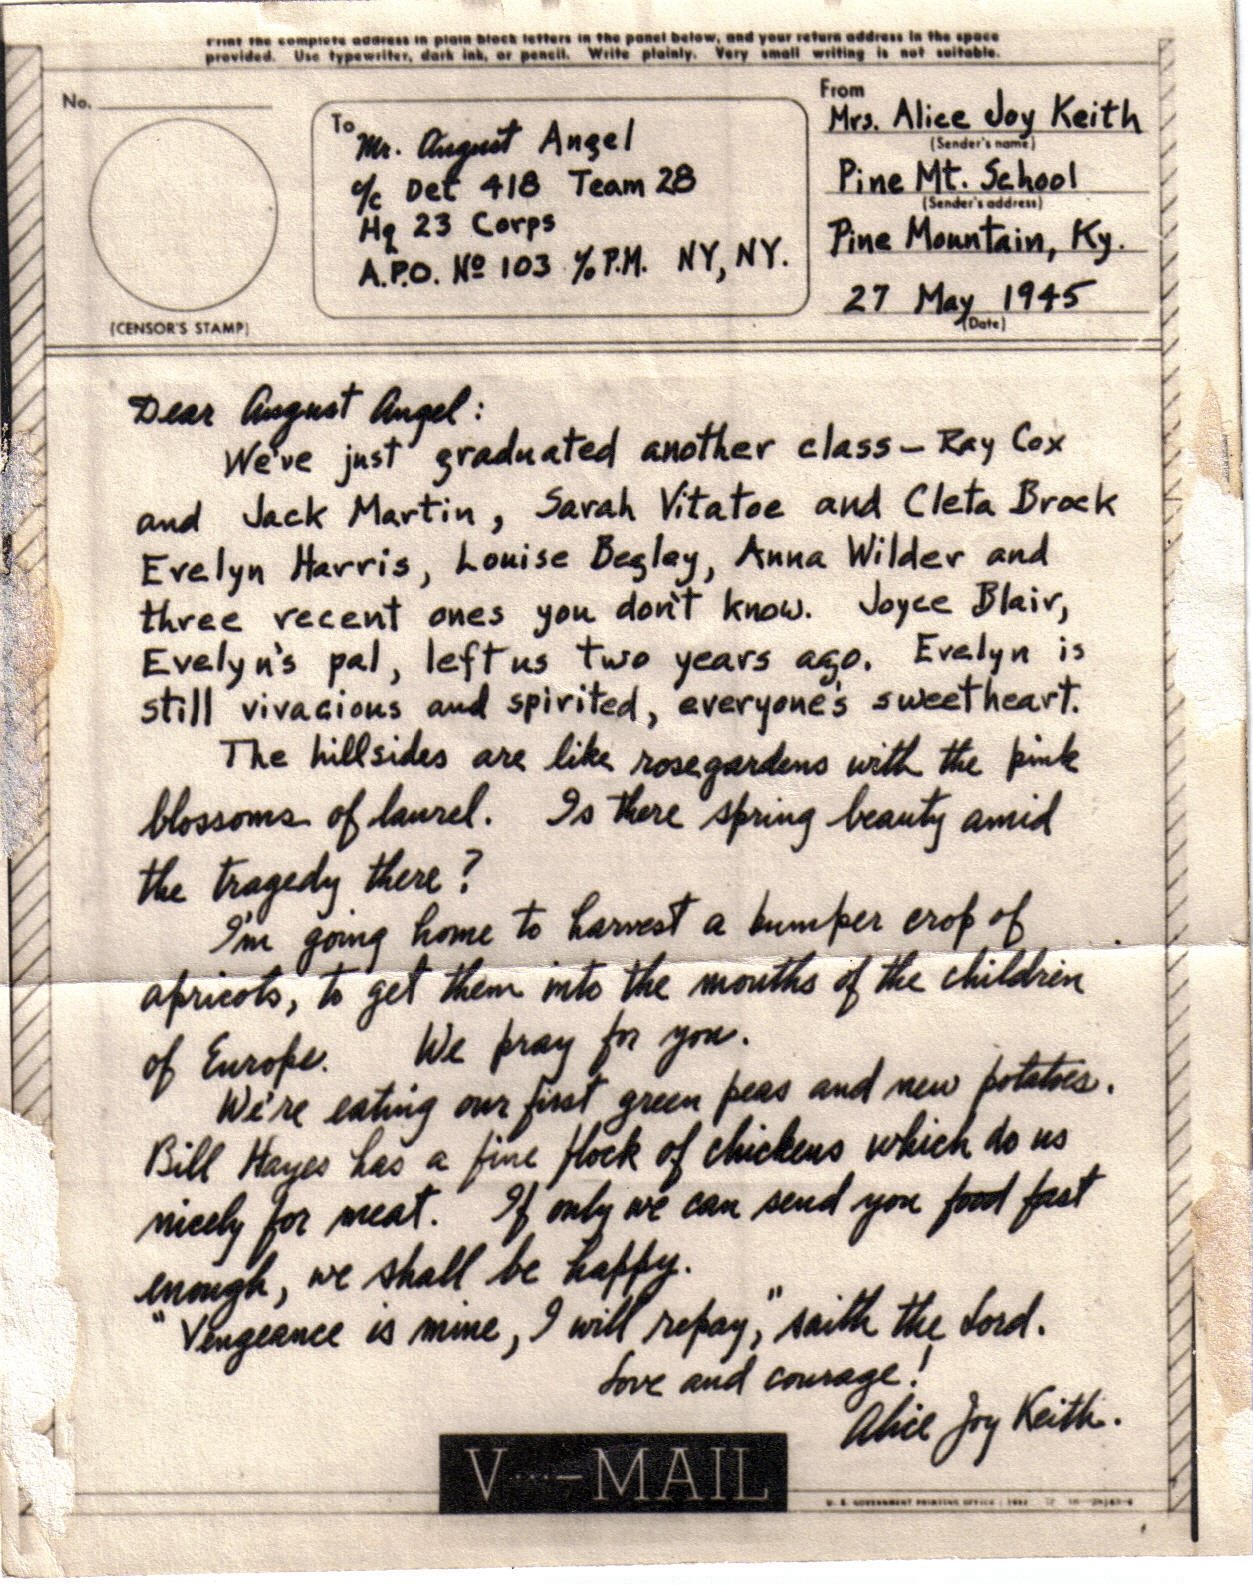 Print the complete address in plain block letters in the panel below, and your return address in the space
provided. Use typewriter, dark ink, or pencil. Write plainly. Very small writing is not suitable.
No.
(CENSOR'S STAMP)
To
Mr. August Angel
c/o Det 418 Team 28
Hq 23 Corps
A.P.O. No 103 c/o P.M. NY, NY.
From
Mrs. Alice Joy Keith
(Sender's name)
Pine Mt. School
(Sender's address)
Pine Mountain, Ky.
27 May 1945
(Date)
Dear August Angel:
We've just graduated another class — Ray Cox
and Jack Martin, Sarah Vitatoe and Cleta Brock
Evelyn Harris, Louise Begley, Anna Wilder and
three recent ones you don't know. Joyce Blair,
Evelyn's pal, left us two years ago. Evelyn is
still vivacious and spirited, everyone's sweetheart.
The hillsides are like rosegardens with the pink
blossoms of laurel. Is there spring beauty amid
the tragedy there?
I'm going home to harvest a bumper crop of
apricots, to get them into the mouths of the children
of Europe. We pray for you.
We're eating our first green peas and new potatoes.
Bill Hayes has a fine flock of chickens which do us
nicely for meat. If only we can send you food fast
enough, we shall be happy.
"Vengeance is mine, I will repay," saith the Lord.
Love and courage!
Alice Joy Keith.
V···—MAIL
U. S. GOVERNMENT PRINTING OFFICE : 1942